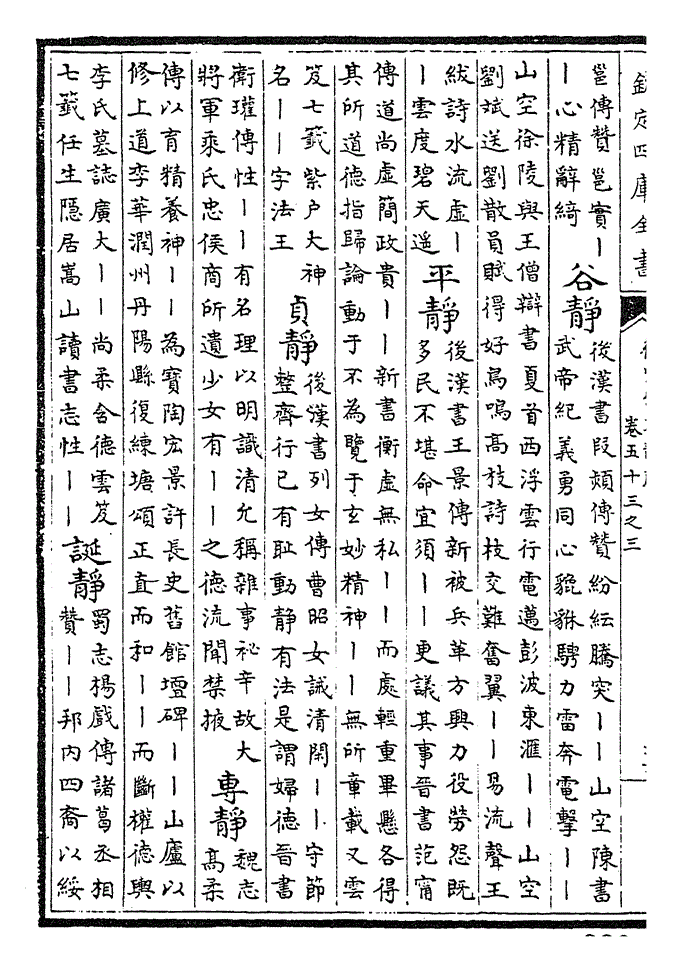 欽定四庫全書
卷五十三之三
邕傳贊邕實丨
丨心精辭綺
谷靜
後漢書段熲傳贊紛紜騰突丨丨山空陳書
武帝紀義勇同心貔貅騁力雷奔電擊丨丨
山空徐陵與王僧辯書夏首西浮雲行電邁彭波東滙丨丨山空
劉斌送劉散員賦得好鳥鳴高枝詩枝交難奮翼丨丨易流聲王
紱詩水流虛丨
丨雲度碧天遥
平靜
後漢書王景傳新被兵革方興力役勞怨既
多民不堪命宜須丨丨更議其事晉書范甯
傳道尚虛簡政貴丨丨新書衡虛無私丨丨而處輕重畢懸各得
其所道德指歸論動于不為覽于玄妙精神丨丨無所章載又雲
笈七籤紫户大神
名丨丨字法王
貞靜
後漢書列女傳曹昭女誡清閑丨丨守節
整齊行已有耻動靜有法是謂婦德晉書
衛瓘傳性丨丨有名理以明識清允稱雜事祕辛故大
將軍乘氏忠侯商所遺少女有丨丨之德流聞禁掖
專靜
魏志
髙柔
傳以育精養神丨丨為寶陶宏景許長史舊館壇碑丨丨山廬以
修上道李華潤州丹陽縣復練塘頌正直而和丨丨而斷權德輿
李氏墓誌廣大丨丨尚柔含德雲笈
七籤任生隱居嵩山讀書志性丨丨
誕靜
蜀志楊戲傳諸葛丞相
贊丨丨邦内四裔以綏